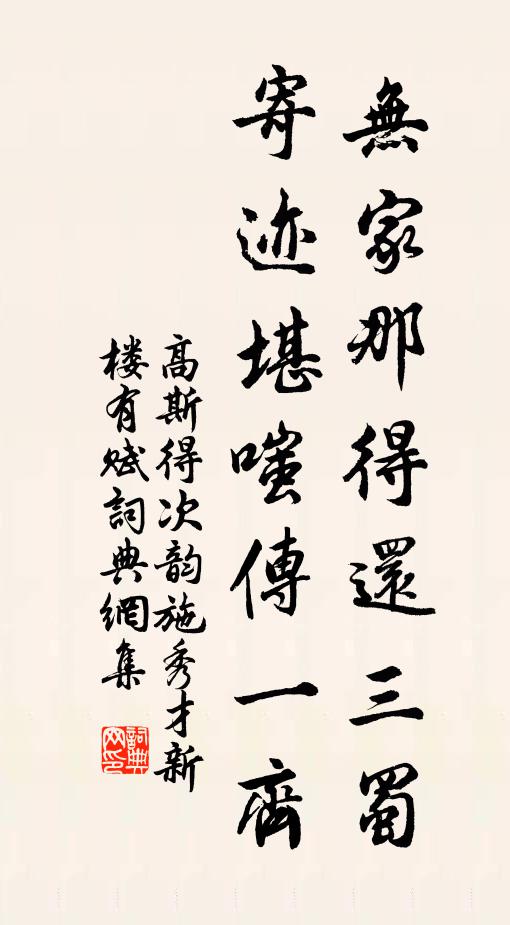 無家那得還三蜀
寄迹堪嗤傳一齊
高斯得次韵施秀才新
楼有赋詞典網集
詞典
网印